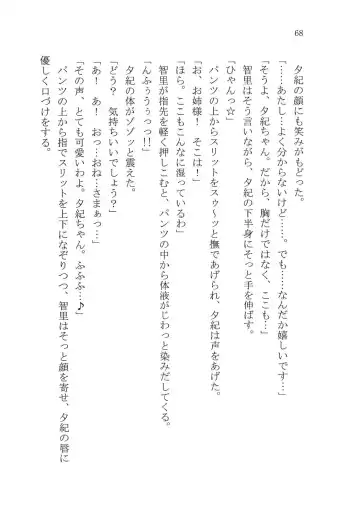 68
夕紀の顔にも笑みがもどった。
「……あたし…よく分からないけど……。でも……なんだか嬉しいです…」
「そうよ、夕紀ちゃん。だから、胸だけではなく、ここも…」
智里はそう言いながら、夕紀の下半身にそっと手を伸ばす。
「ひゃんっ☆」
パンツの上からスリットをスゥ〜ッと撫であげられ、夕紀は声をあげた。
「お、お姉様！　そこは！」
「ほら。ここもこんなに湿っているわ」
智里が指先を軽く押しこむと、パンツの中から体液がじわっと染みだしてくる。
「んふぅうぅっっ!!」
夕紀の体がゾゾッと震えた。
「どう？　気持ちいいでしょう？」
「あ！　あ！　おっ…おね…さまぁっ…」
「その声、とても可愛いわよ。夕紀ちゃん。ふふふ…♪」
パンツの上から指でスリットを上下になぞりつつ、智里はそっと顔を寄せ、夕紀の唇に
優しく口づけをする。